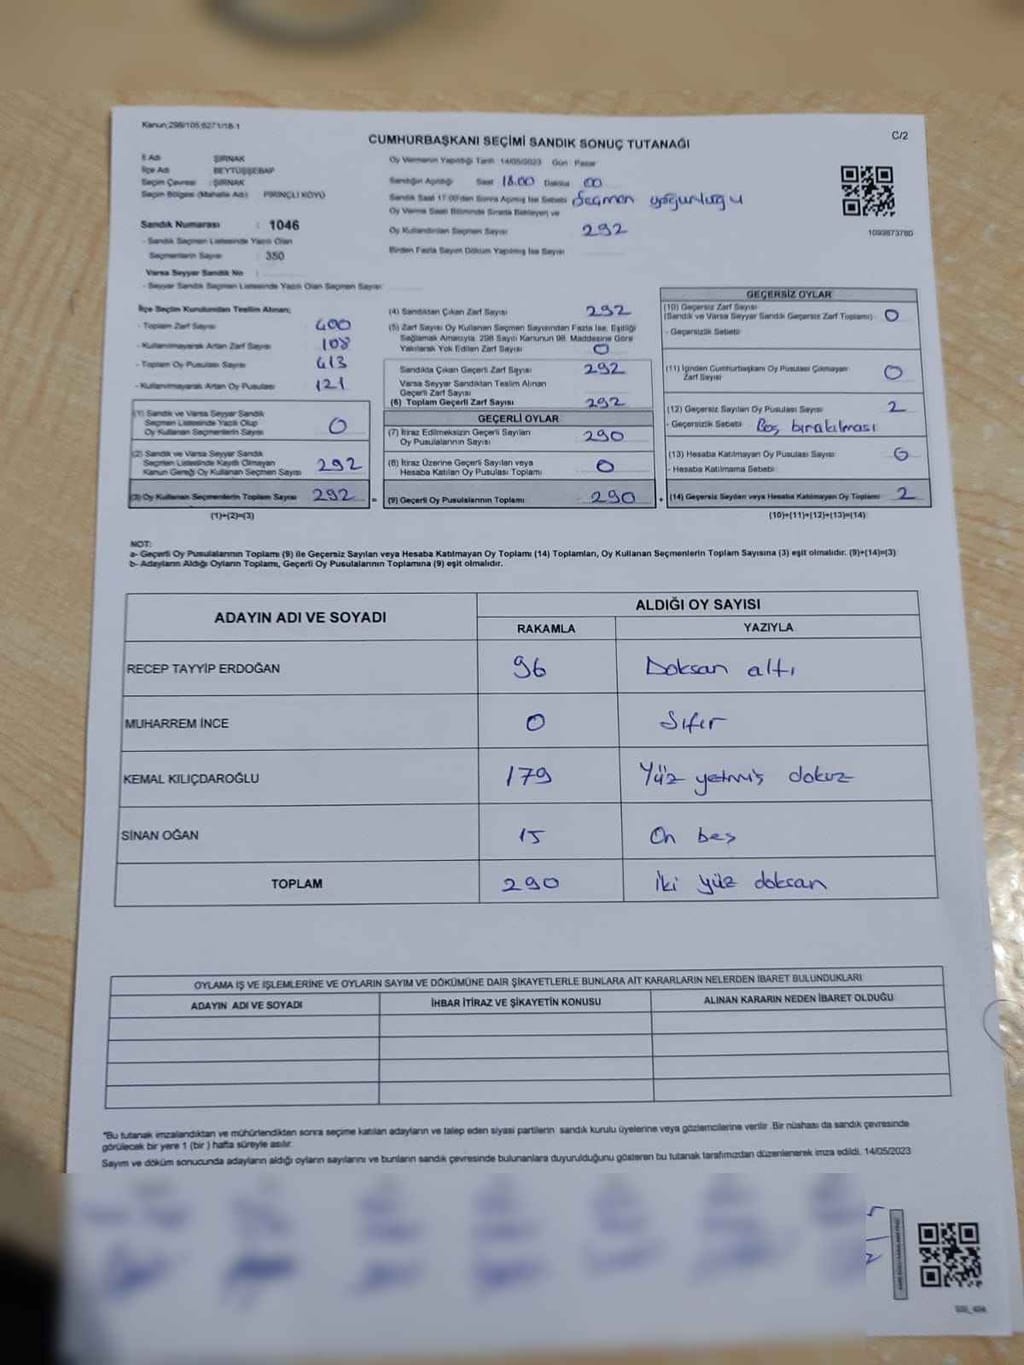 Kanun;298/105;6271/18-1
CUMHURBAŞKANI SEÇİMİ SANDIK SONUÇ TUTANAĞI
C/2
İl Adı : ŞIRNAK
İlçe Adı : BEYTÜŞŞEBAP
Seçim Çevresi : ŞIRNAK
Seçim Bölgesi (Mahalle Adı) : PİRİNÇLİ KÖYÜ
Sandık Numarası : 1046
- Sandık Seçmen Listesinde Yazılı Olan
Seçmenlerin Sayısı : 350
Varsa Seyyar Sandık No :
- Seyyar Sandık Seçmen Listesinde Yazılı Olan Seçmen Sayısı:
Oy Vermenin Yapıldığı Tarih 14/05/2023 Gün : Pazar
Sandığın Açıldığı Saat 18.00 Dakika 00
Sandık Saat 17:00'den Sonra Açılmış İse Sebebi Seçmen yoğunluğu
Oy Verme Saati Bitiminde Sırada Bekleyen ve
Oy Kullandırılan Seçmen Sayısı 292
Birden Fazla Sayım Döküm Yapılmış İse Sayısı
1093873780
İlçe Seçim Kurulundan Teslim Alınan;
- Toplam Zarf Sayısı 400
- Kullanılmayarak Artan Zarf Sayısı 108
- Toplam Oy Pusulası Sayısı 413
- Kullanılmayarak Artan Oy Pusulası 121
(1) Sandık ve Varsa Seyyar Sandık
Seçmen Listesinde Yazılı Olup
Oy Kullanan Seçmenlerin Sayısı 0
(2) Sandık ve Varsa Seyyar Sandık
Seçmen Listesinde Kayıtlı Olmayan
Kanun Gereği Oy Kullanan Seçmen Sayısı 292
(3) Oy Kullanan Seçmenlerin Toplam Sayısı 292 =
(1)+(2)=(3)
(4) Sandıktan Çıkan Zarf Sayısı 292
(5) Zarf Sayısı Oy Kullanan Seçmen Sayısından Fazla İse, Eşitliği
Sağlamak Amacıyla, 298 Sayılı Kanunun 98. Maddesine Göre
Yakılarak Yok Edilen Zarf Sayısı 0
Sandıkta Çıkan Geçerli Zarf Sayısı 292
Varsa Seyyar Sandıktan Teslim Alınan
Geçerli Zarf Sayısı
(6) Toplam Geçerli Zarf Sayısı 292
GEÇERLİ OYLAR
(7) İtiraz Edilmeksizin Geçerli Sayılan
Oy Pusulalarının Sayısı 290
(8) İtiraz Üzerine Geçerli Sayılan veya
Hesaba Katılan Oy Pusulası Toplamı 0
(9) Geçerli Oy Pusulalarının Toplamı 290 +
GEÇERSİZ OYLAR
(10) Geçersiz Zarf Sayısı
(Sandık ve Varsa Seyyar Sandık Geçersiz Zarf Toplamı) : 0
- Geçersizlik Sebebi :
(11) İçinden Cumhurbaşkanı Oy Pusulası Çıkmayan :
Zarf Sayısı 0
(12) Geçersiz Sayılan Oy Pusulası Sayısı : 2
- Geçersizlik Sebebi : Boş bırakılması
(13) Hesaba Katılmayan Oy Pusulası Sayısı : 0
- Hesaba Katılmama Sebebi :
(14) Geçersiz Sayılan veya Hesaba Katılmayan Oy Toplamı : 2
(10)+(11)+(12)+(13)=(14)
NOT:
a- Geçerli Oy Pusulalarının Toplamı (9) ile Geçersiz Sayılan veya Hesaba Katılmayan Oy Toplamı (14) Toplamları, Oy Kullanan Seçmenlerin Toplam Sayısına (3) eşit olmalıdır. (9)+(14)=(3)
b- Adayların Aldığı Oyların Toplamı, Geçerli Oy Pusulalarının Toplamına (9) eşit olmalıdır.
ADAYIN ADI VE SOYADI
ALDIĞI OY SAYISI
RAKAMLA YAZIYLA
RECEP TAYYİP ERDOĞAN 96 Doksan altı
MUHARREM İNCE 0 Sıfır
KEMAL KILIÇDAROĞLU 179 Yüz yetmiş dokuz
SİNAN OĞAN 15 On beş
TOPLAM 290 İki yüz doksan
OYLAMA İŞ VE İŞLEMLERİNE VE OYLARIN SAYIM VE DÖKÜMÜNE DAİR ŞİKAYETLERLE BUNLARA AİT KARARLARIN NELERDEN İBARET BULUNDUKLARI
ADAYIN ADI VE SOYADI İHBAR İTİRAZ VE ŞİKAYETİN KONUSU ALINAN KARARIN NEDEN İBARET OLDUĞU
*Bu tutanak imzalandıktan ve mühürlendikten sonra seçime katılan adayların ve talep eden siyasi partilerin sandık kurulu üyelerine veya gözlemcilerine verilir. Bir nüshası da sandık çevresinde
görülecek bir yere 1 (bir ) hafta süreyle asılır.
Sayım ve döküm sonucunda adayların aldığı oyların sayılarını ve bunların sandık çevresinde bulunanlara duyurulduğunu gösteren bu tutanak tarafımızdan düzenlenerek imza edildi. 14/05/2023